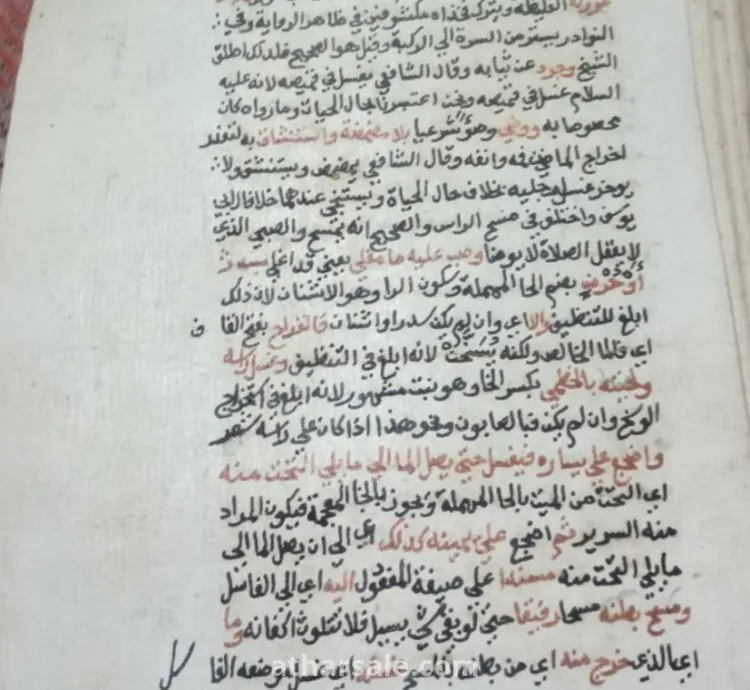 عورته الغليظة ويترك فخذاه مكشوفتين في ظاهر الرواية وفي
النوادر يستر من السرة الي الركبة وقيل هو الصحيح فلذلك اطلق
الشيخ وجرد عن ثيابه وقال الشافعي يغسل في قميصه لانه عليه
السلام غسل في قميصه ونحن اعتبرنا بحال الحياة وما رواه كان
مخصوصا به ووضي وهو شرعيا بلا مضمضة واستنشاق به لتعذر
اخراج الما من فمه وانفه وقال الشافعي يمضمض ويستنشق ولا
يوخر غسل رجليه بخلاف حال الحياة ويستنجي عندهما خلافا لابي
يوسف واختلفو في مسح الراس والصحيح انه يمسح والصبي الذي
لا يعقل الصلاة لا يوضا وصب عليه ما مغلي يعني قد اغلي بسدر
أو حرض بضم الحا المهملة وسكون الرا وهو الاشنان لان ذلك
ابلغ للتنظيف والا اي وان لم يكن سدر او اشنان فالقراح بفتح القا ف
اي فالما الخالص ولكنه يسخن لانه ابلغ في التنظيف وغسل راسه
ولحيته بالخطمي بكسر الخا وهو نبت مشهور لانه ابلغ في استخراج
الوسخ وان لم يكن فبالصابون ونحوه هذا اذا كان علي راسه شعر
واضجع علي يساره فيغسل حتي يصل الما الي ما يلي التخت منه
اي التحت من الميت بالحا المهملة ويجوز بالخا المعجمة فيكون المراد
منه السرير ثم اضجع علي يمينه كذلك اي الي ان يصل الما الي
ما يلي التخت منه مسندا علي صيغة المفعول اليه اي الي الغاسل
ومسح بطنه مسحا رفيقا حتي لو بقي شي يسيل فلا تتلوث اكفانه وما
اي الذي خرج منه اي من بطنه
athарsale.com